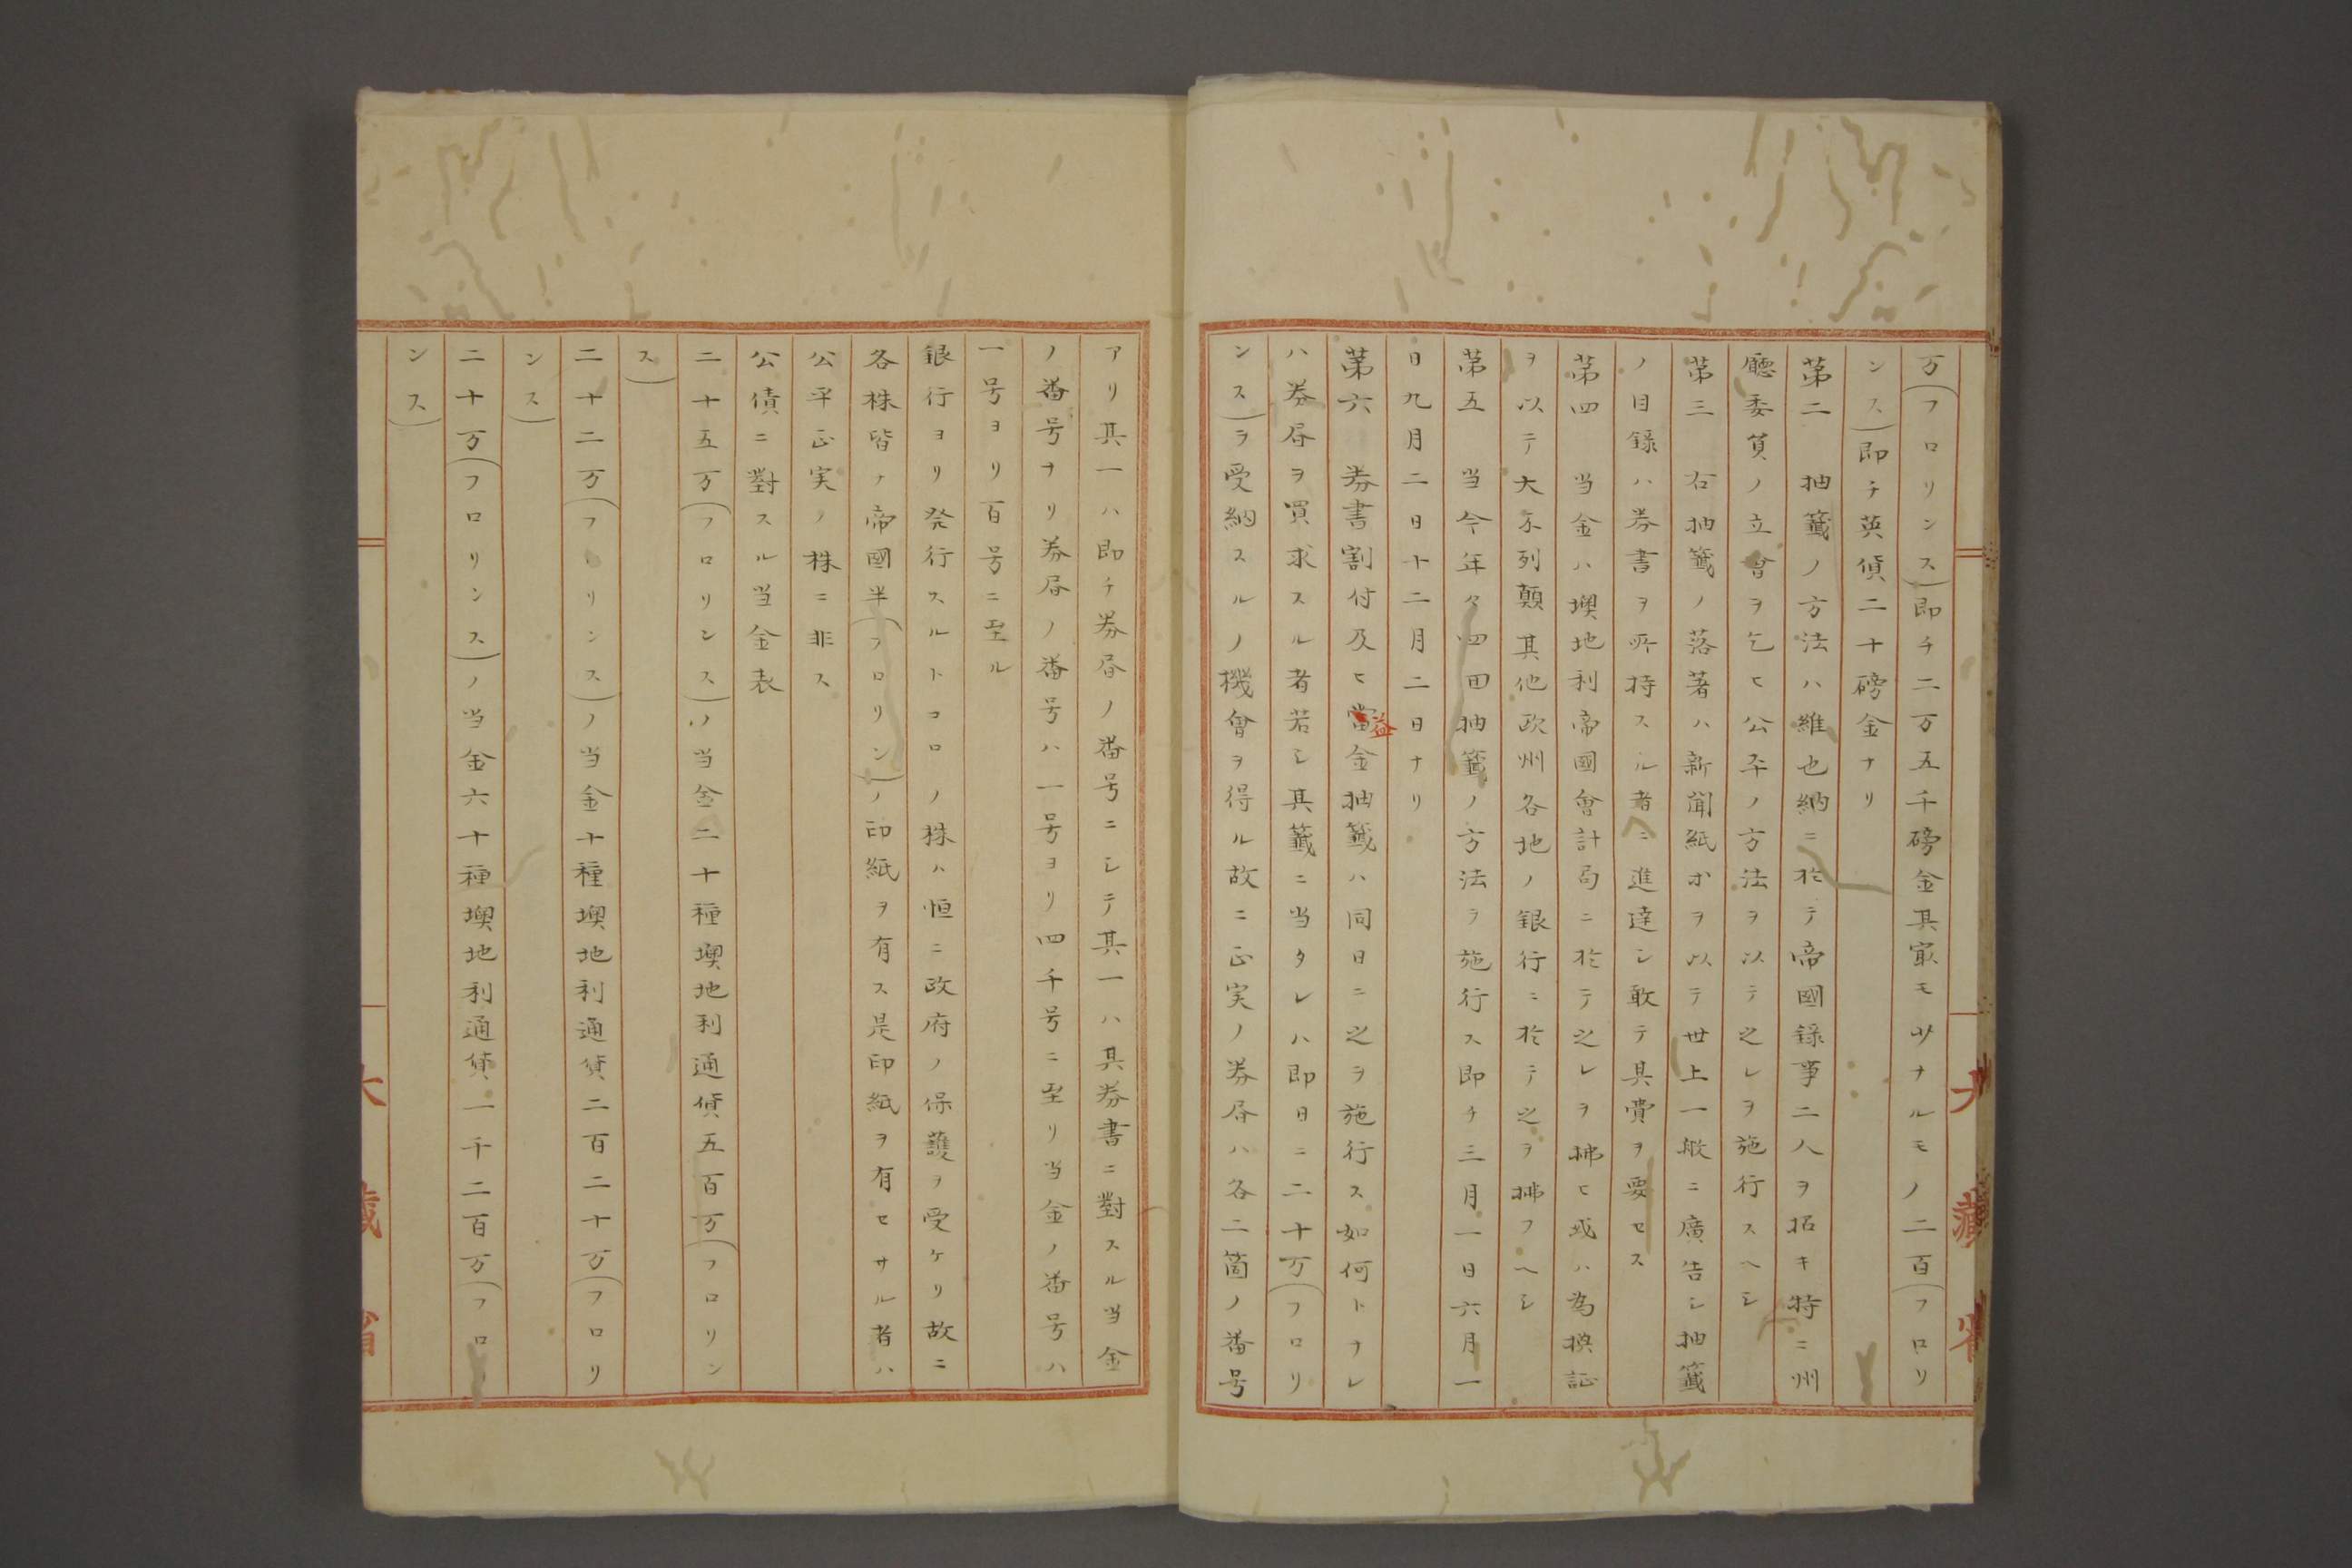 万(フロリンス)即チ二万五千磅金其最モ少ナルモノ二百(フロリ
ンス)即チ英貨二十磅金ナリ
第二　抽籤ノ方法ハ維也納ニ於テ帝國録事二人ヲ招キ特ニ州
廳委員ノ立會ヲ乞ヒ公平ノ方法ヲ以テ之レヲ施行スヘシ
第三　右抽籤ノ落著ハ新聞紙ホヲ以テ世上一般ニ廣告シ抽籤
ノ目録ハ券書ヲ所持スル者ニ進達シ敢テ其費ヲ要セス
第四　当金ハ墺地利帝國會計局ニ於テ之レヲ拂ヒ或ハ為換証
ヲ以テ大不列顛其他欧州各地ノ銀行ニ於テ之ヲ拂フヘシ
第五　当今年々四回抽籤ノ方法ヲ施行ス即チ三月一日六月一
日九月二日十二月二日ナリ
第六　券書割付及ヒ當金抽籤ハ同日ニ之ヲ施行ス如何トナレ
益
ハ券届ヲ買求スル者若シ其籤ニ当タレハ即日ニ二十万(フロリ
ンス)ヲ受納スルノ機會ヲ得ル故ニ正実ノ券届ハ各二箇ノ番号
アリ其一ハ即チ券届ノ番号ニシテ其一ハ其券書ニ對スル当金
ノ番号ナリ券届ノ番号ハ一号ヨリ四千号ニ至リ当金ノ番号ハ
一号ヨリ百号ニ至ル
銀行ヨリ発行スルトコロノ株ハ恒ニ政府ノ保護ヲ受ケリ故ニ
各株皆ナ帝國半(フロリン)ノ印紙ヲ有ス是印紙ヲ有セサル者ハ
公平正実ノ株ニ非ス
公債ニ對スル当金表
二十五万(フロリンス)ノ当金二十種墺地利通貨五百万(フロリン
ス)
二十二万(フロリンス)ノ当金十種墺地利通貨二百二十万(フロリ
ンス)
二十万(フロリンス)ノ当金六十種墺地利通貨一千二百万(フロ
ンス)
大藏省
大藏省